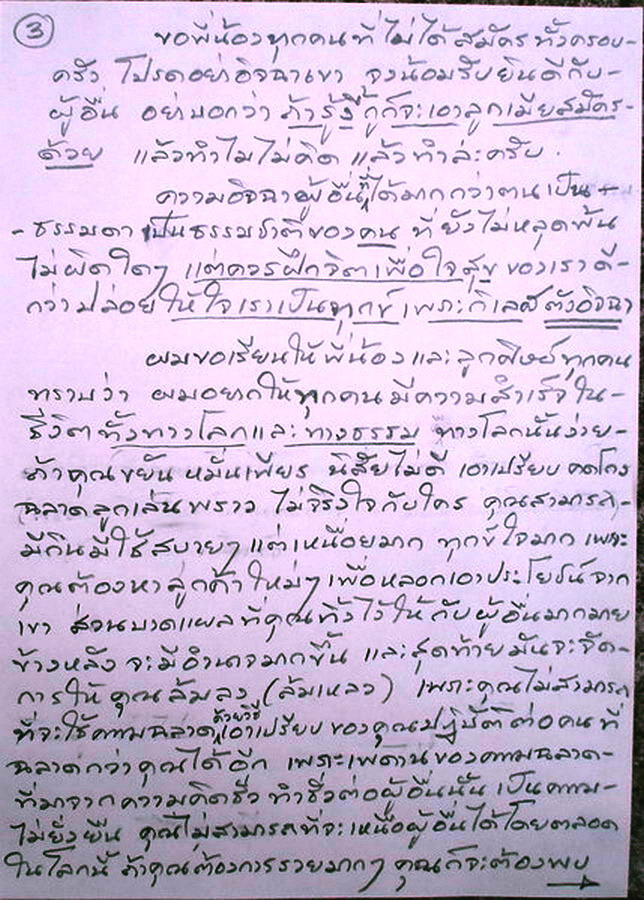 3
ขอพี่น้องทุกคนที่ไม่ได้สมัครทั้งครอบ-
ครัว โปรดอย่าอิจฉาเขา จงน้อมรับยินดีกับ-
ผู้อื่น อย่าบอกว่า ถ้ารู้งี้กูก็จะเอาลูกเมียสมัคร-
ด้วย แล้วทำไมไม่คิด แล้วทำล่ะครับ.
ความอิจฉาผู้อื่นที่ได้มากกว่าตนเป็น
- ธรรมดา เป็นธรรมชาติของคน ที่ยังไม่หลุดพ้น
ไม่ผิดใดๆ แต่ควรฝึกจิตเพื่อใจสุข ของเราดี-
กว่าปล่อยให้ใจเราเป็นทุกข์ เพราะกิเลศตัวอิจฉา
ผมขอเรียนให้พี่น้องและลูกศิษย์ทุกคน
ทราบว่า ผมอยากให้ทุกคนมีความสำเร็จใน-
ชีวิตทั้งทางโลกและทางธรรม ทางโลกนั้นง่าย-
ถ้าคุณขยัน หมั่นเพียร นิสัยไม่ดี เอาเปรียบ คดโกง
ฉลาดลูกเล่นพราว ไม่จริงใจกับใคร คุณสามารถ-
มีกินมีใช้สบายๆ แต่เหนื่อยมาก ทุกข์ใจมาก เพราะ
คุณต้องหาลูกค้าใหม่ๆ เพื่อหลอกเอาประโยชน์จาก
เขา ส่วนบาดแผลที่คุณทิ้งไว้ให้กับผู้อื่นมากมาย
ข้างหลัง จะมีอำนาจมากขึ้น และสุดท้ายมันจะจัด-
การให้คุณล้มลง (ล้มเหลว) เพราะคุณไม่สามารถ
ที่จะใช้ความฉลาดด้วยวิธีเอาเปรียบของคุณปฏิบัติต่อคนที่
ฉลาดกว่าคุณได้อีก เพราะเพดานของความฉลาด-
ที่มาจากความคิดชั่ว ทำชั่วต่อผู้อื่นนั้น เป็นความ-
ไม่ยั่งยืน คุณไม่สามารถที่จะเหนือผู้อื่นได้โดยตลอด
ในโลกนี้ ถ้าคุณต้องการรวยมากๆ คุณก็จะต้องพบ